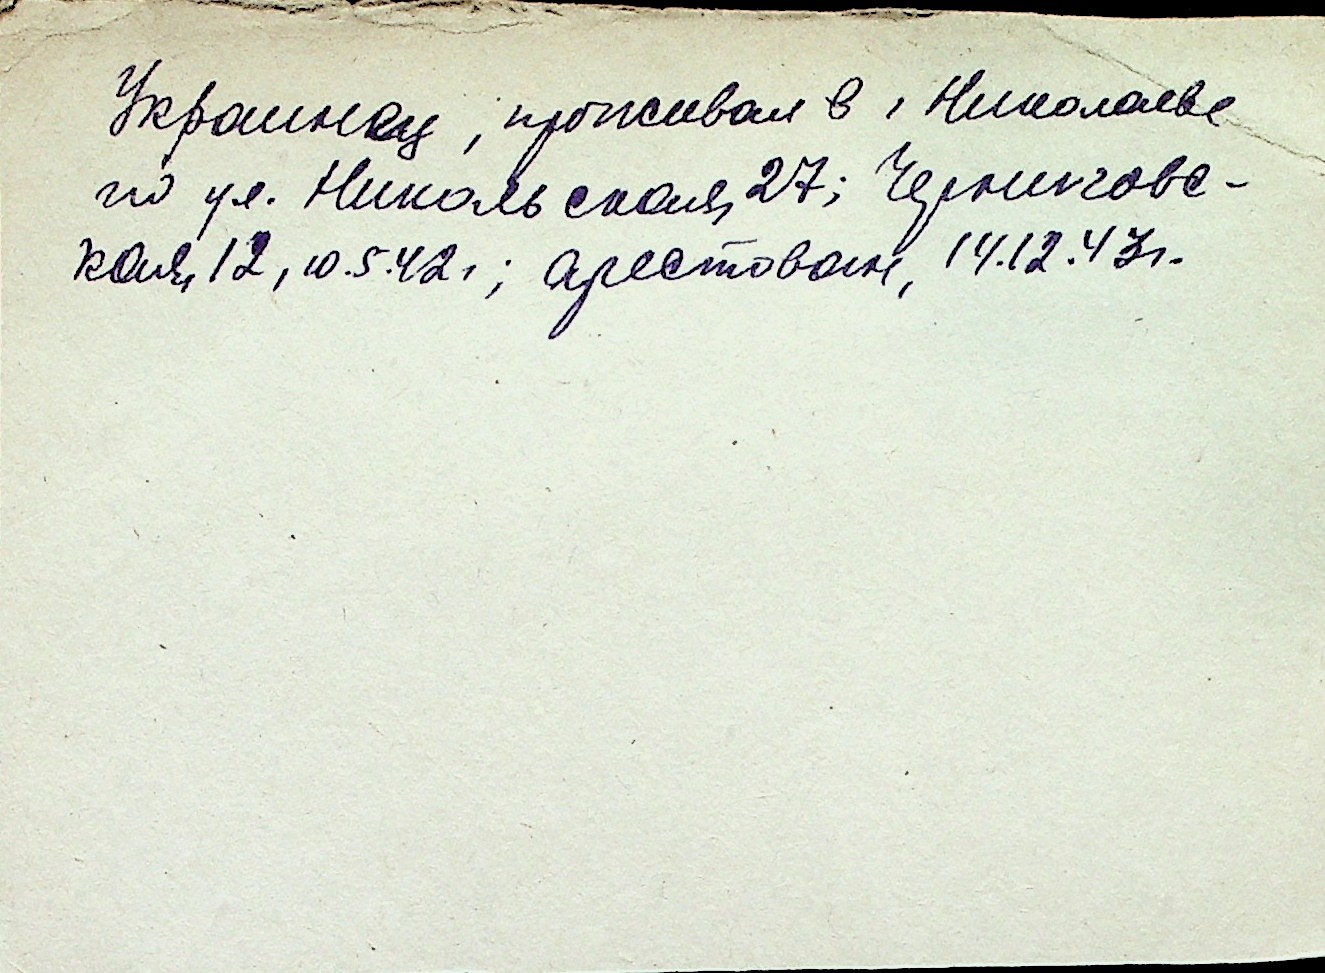 Украинец, проживал в г Николаеве
по ул. Никольская, 27; Черниговс-
кая, 12, 10.5.42г; арестован, 14.12.43г.